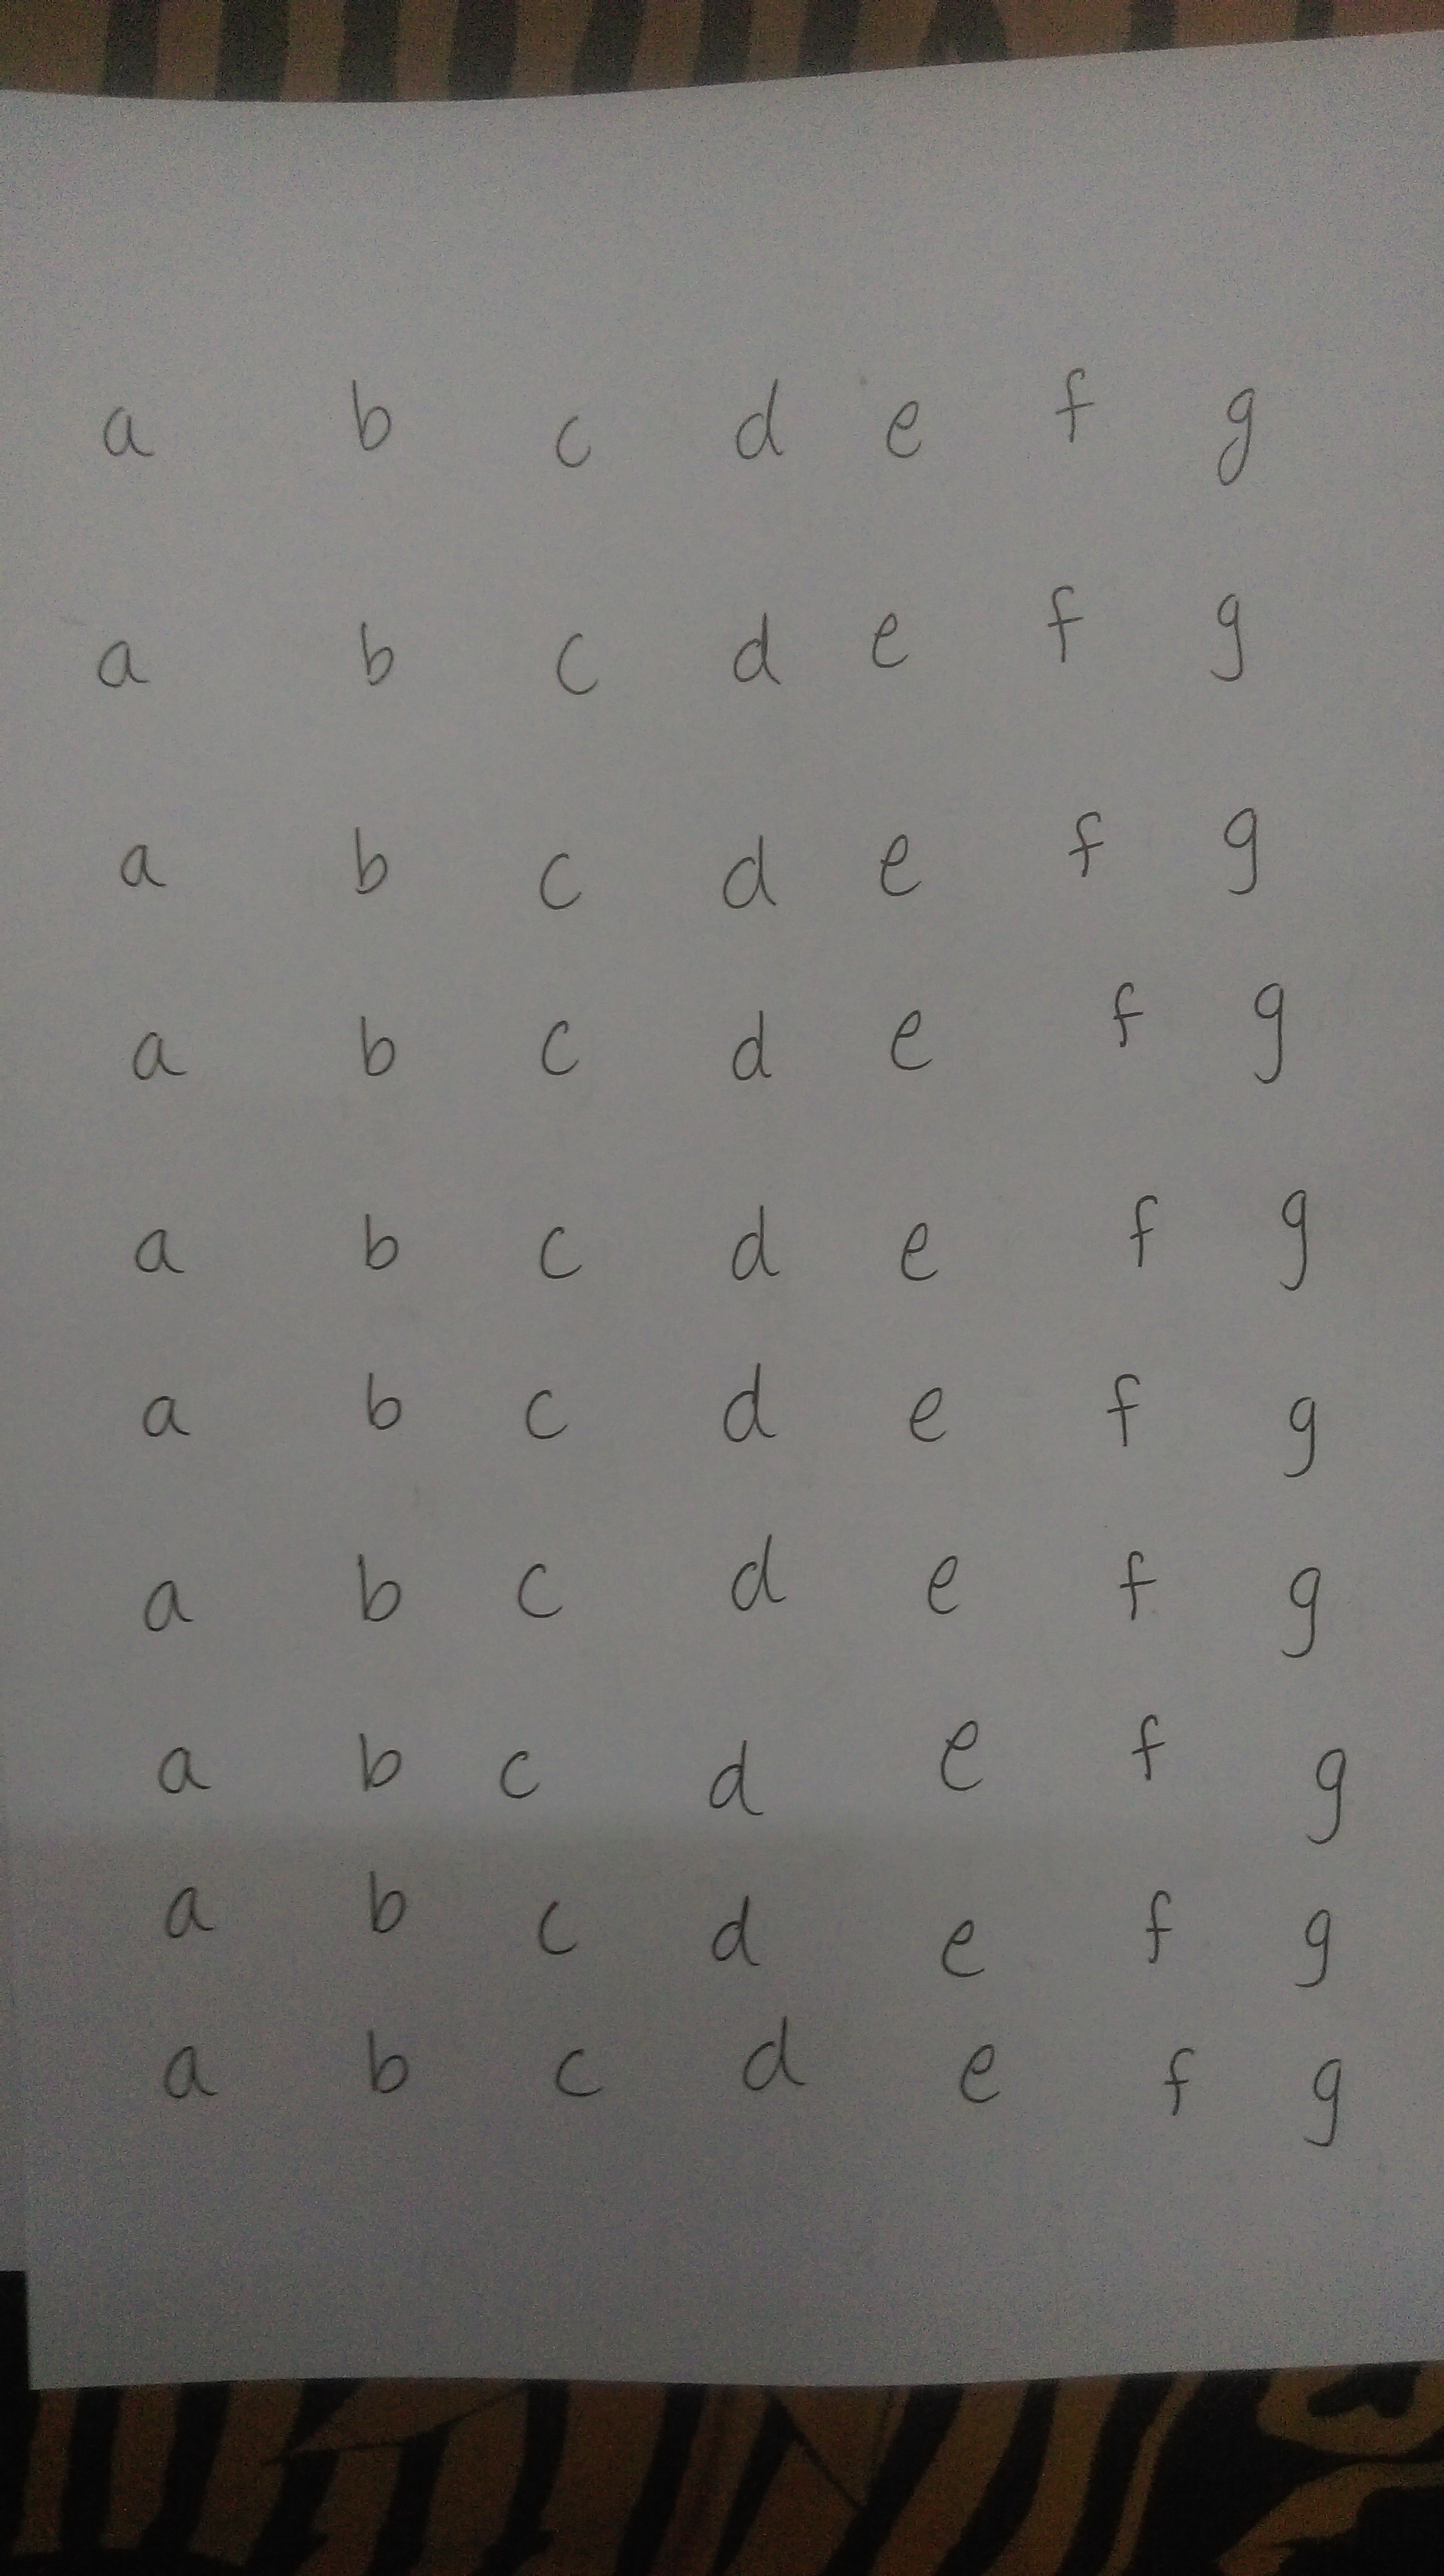 a b c d e f g
a b c d e f g
a b c d e f g
a b c d e f g
a b c d e f g
a b c d e f g
a b c d e f g
a b c d e f g
a b c d e f g
a b c d e f g